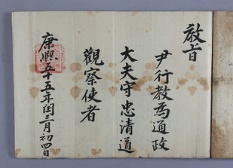 教旨
尹行教爲通政
大夫守忠清道
觀察使者
康熙五十五年閏三月初四日